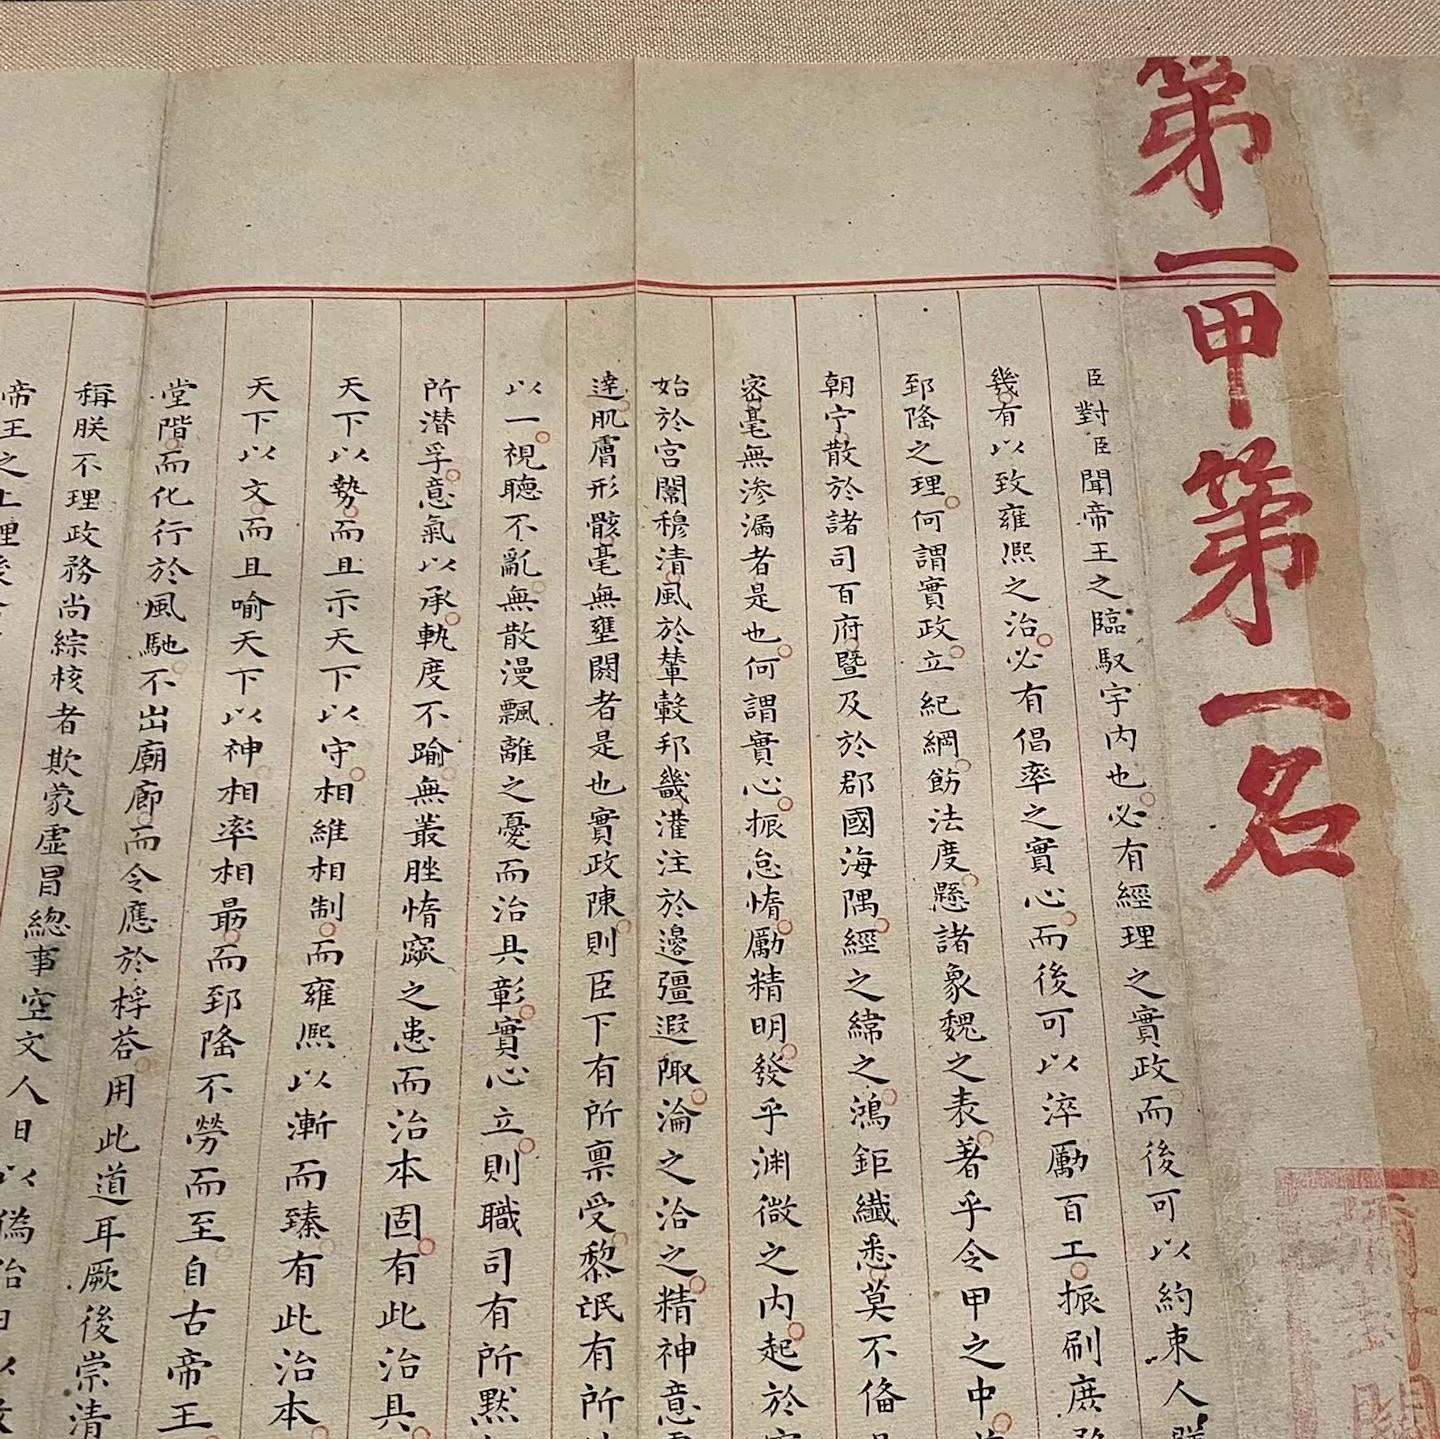 第一甲第一名
臣對臣聞帝王之臨馭宇內也必有經理之實政而後可以約束人群
幾有以致雍熙之治必有倡率之實心而後可以淬勵百工振刷庶務
郅隆之理何謂實政立紀綱飭法度懸諸象魏之表著乎令甲之中
朝宁散於諸司百府暨及於郡國海隅經之緯之鴻鉅纖悉莫不俻
密毫無滲漏者是也何謂實心振怠惰勵精明發乎渊微之內起於
始於宮闈穆清風於輦轂邦畿灌注於邊疆遐陬淪之洽之精神意
達肌膚形骸毫無壅閼者是也實政陳則臣下有所禀受黎氓有所
以一視聽不亂無散漫飄離之憂而治具彰實心立則職司有所默
所潛孚意氣以承軌度不踰無叢脞惰窳之患而治本固有此治具
天下以勢而且示天下以守相維相制而雍熙以漸而臻有此治本
天下以文而且喻天下以神相率相最而郅隆不勞而至自古帝王
堂階而化行於風馳不出廟廊而令應於桴荅用此道耳厥後崇清
稱朕不理政務尚綜核者欺蒙虛冒總事空文人日以偽治日以
帝王之上理後